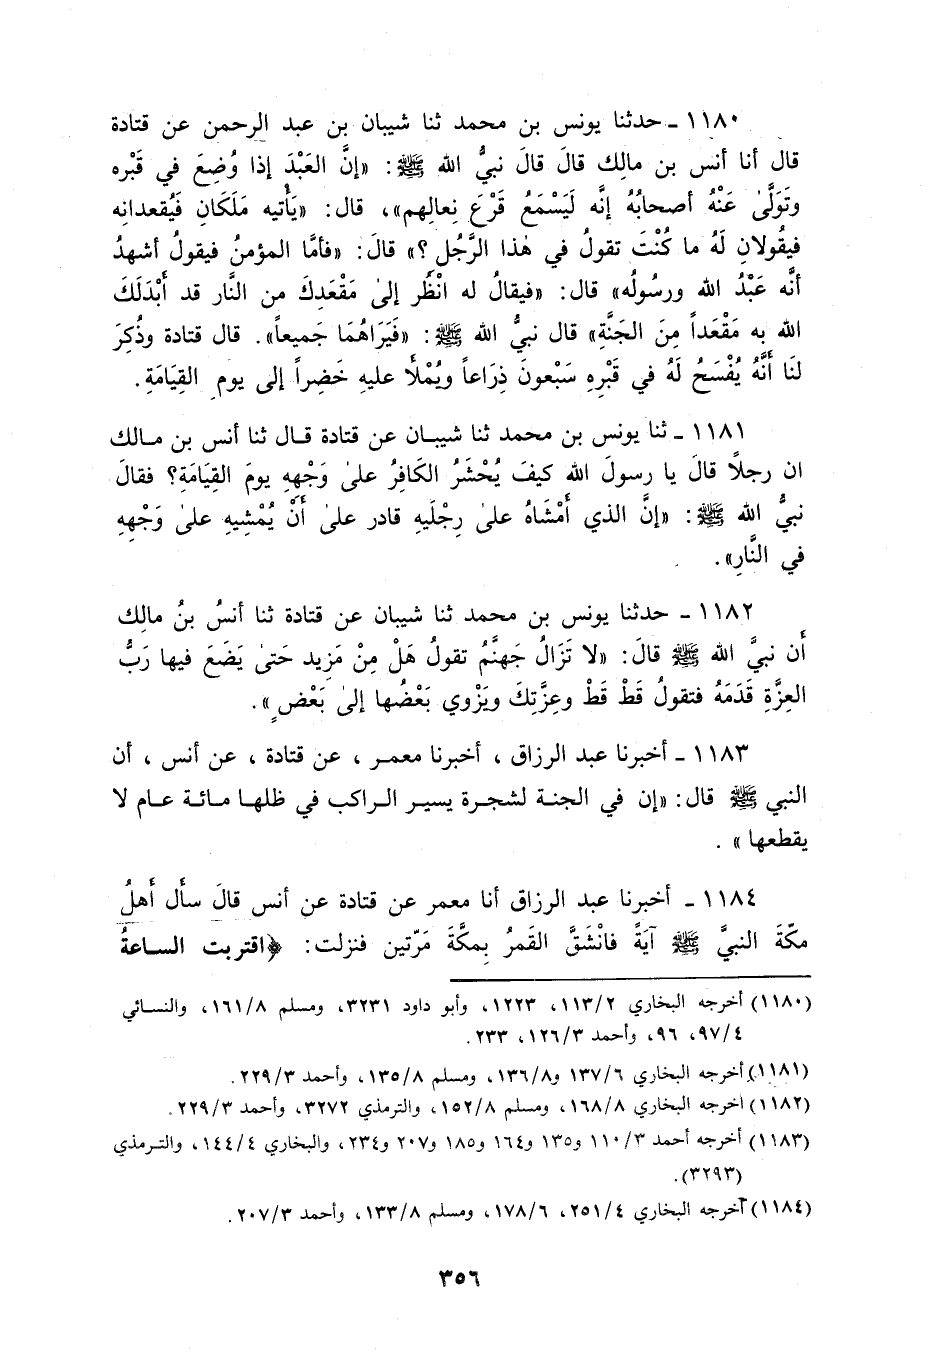 ١١٨٠ ـ حدثنا يونس بن محمد ثنا شيبان بن عبد الرحمن عن قتادة
قال أنا أنس بن مالك قالَ قالَ نبيُّ الله ﷺ: «إنَّ العَبْدَ إذا وُضِعَ في قَبْره
وتَوَلَّىٰ عَنْهُ أصحابُهُ إنَّه لَيَسْمَعُ قَرْعَ نِعالِهم»، قال: «يَأْتيه مَلَكَانِ فَيُقعدانِه
فيقُولانِ لَهُ ما كُنْتَ تقولُ في هٰذا الرَّجُل ؟» قالَ: «فأمَّا المؤمنُ فيقولُ أشهدُ
أنَّه عَبْدُ الله ورسُولُه» قال: «فيقالُ له انْظُر إلىٰ مَقْعَدِكَ من النَّار قد أبْدَلَكَ
الله به مَقْعَداً مِنَ الجَنَّةِ» قال نبيُّ الله ﷺ: «فَيَرَاهُمَا جَميعاً». قال قتادة وذُكِرَ
لنَا أنَّهُ يُفْسَحُ لَهُ في قَبْرِه سَبْعونَ ذِرَاعاً ويُمْلأ عليهِ خَضِراً إلى يوم القِيَامَةِ.
١١٨١ ـ ثنا يونس بن محمد ثنا شيبان عن قتادة قال ثنا أنس بن مالك
ان رجلاً قالَ يا رسولَ الله كيفَ يُحْشَرُ الكَافِرُ علىٰ وَجْههِ يومَ القِيَامَةِ؟ فقالَ
نبيُّ الله ﷺ: «إنَّ الذي أمْشَاهُ علىٰ رِجْلَيهِ قادر علىٰ أَنْ يُمْشِيهِ علىٰ وَجْههِ
في النَّارِ».
١١٨٢ ـ حدثنا يونس بن محمد ثنا شيبان عن قتادة ثنا أنسُ بنُ مالك
أن نبيَّ الله ﷺ قالَ: «لا تَزَالُ جَهنَّمُ تقولُ هَلْ مِنْ مَزِيد حَتىٰ يَضَعَ فيها رَبُّ
العِزَّةِ قَدَمَهُ فتقولُ قَطْ قَطْ وعِزَّتِكَ ويَزْوي بَعْضُها إلىٰ بَعْضٍ».
١١٨٣ ـ أخبرنا عبد الرزاق ، أخبرنا معمر ، عن قتادة ، عن أنس ، أن
النبي ﷺ قال: «إن في الجنة لشجرة يسير الراكب في ظلها مائة عام لا
يقطعها» .
١١٨٤ ـ أخبرنا عبد الرزاق أنا معمر عن قتادة عن أنس قالَ سأل أهلُ
مكّةَ النبيَّ ﷺ آيَةً فانْشَقَّ القَمرُ بِمكَّةَ مَرّتين فنزلت: ﴿اقتربت الساعةُ
(١١٨٠) أخرجه البخاري ١١٣/٢، ١٢٢٣، وأبو داود ٣٢٣١، ومسلم ١٦١/٨، والنسائي
٩٧/٤، ٩٦، وأحمد ١٢٦/٣، ٢٣٣.
(١١٨١) أخرجه البخاري ١٣٧/٦ و١٣٦/٨، ومسلم ١٣٥/٨، وأحمد ٢٢٩/٣.
(١١٨٢) أخرجه البخاري ١٦٨/٨، ومسلم ١٥٢/٨، والترمذي ٣٢٧٢، وأحمد ٢٢٩/٣.
(١١٨٣) أخرجه أحمد ١١٠/٣ و١٣٥ و١٦٤ و١٨٥ و٢٠٧ و٢٣٤، والبخاري ١٤٤/٤، والترمذي
(٣٢٩٣).
(١١٨٤) أخرجه البخاري ٢٥١/٤، ١٧٨/٦، ومسلم ١٣٣/٨، وأحمد ٢٠٧/٣.
٣٥٦